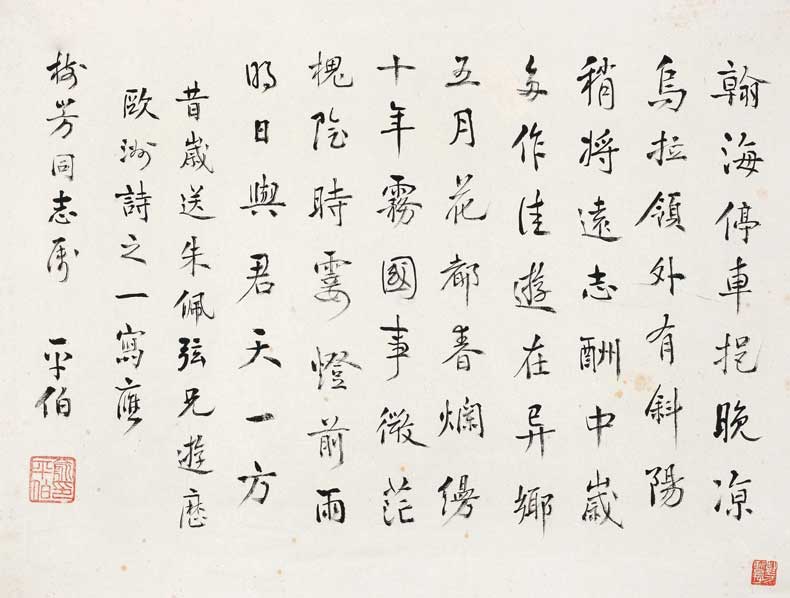 翰海停車挹晚涼
烏拉領外有斜陽
稍將遠志酬中歲
多作佳遊在异鄉
五月花都春爛縵
十年霧國事微茫
槐陰時霎燈前雨
明日與君天一方
昔歲送朱佩弦兄遊歷
歐洲詩之一寫應
樹芳同志属 平伯
俞印平伯